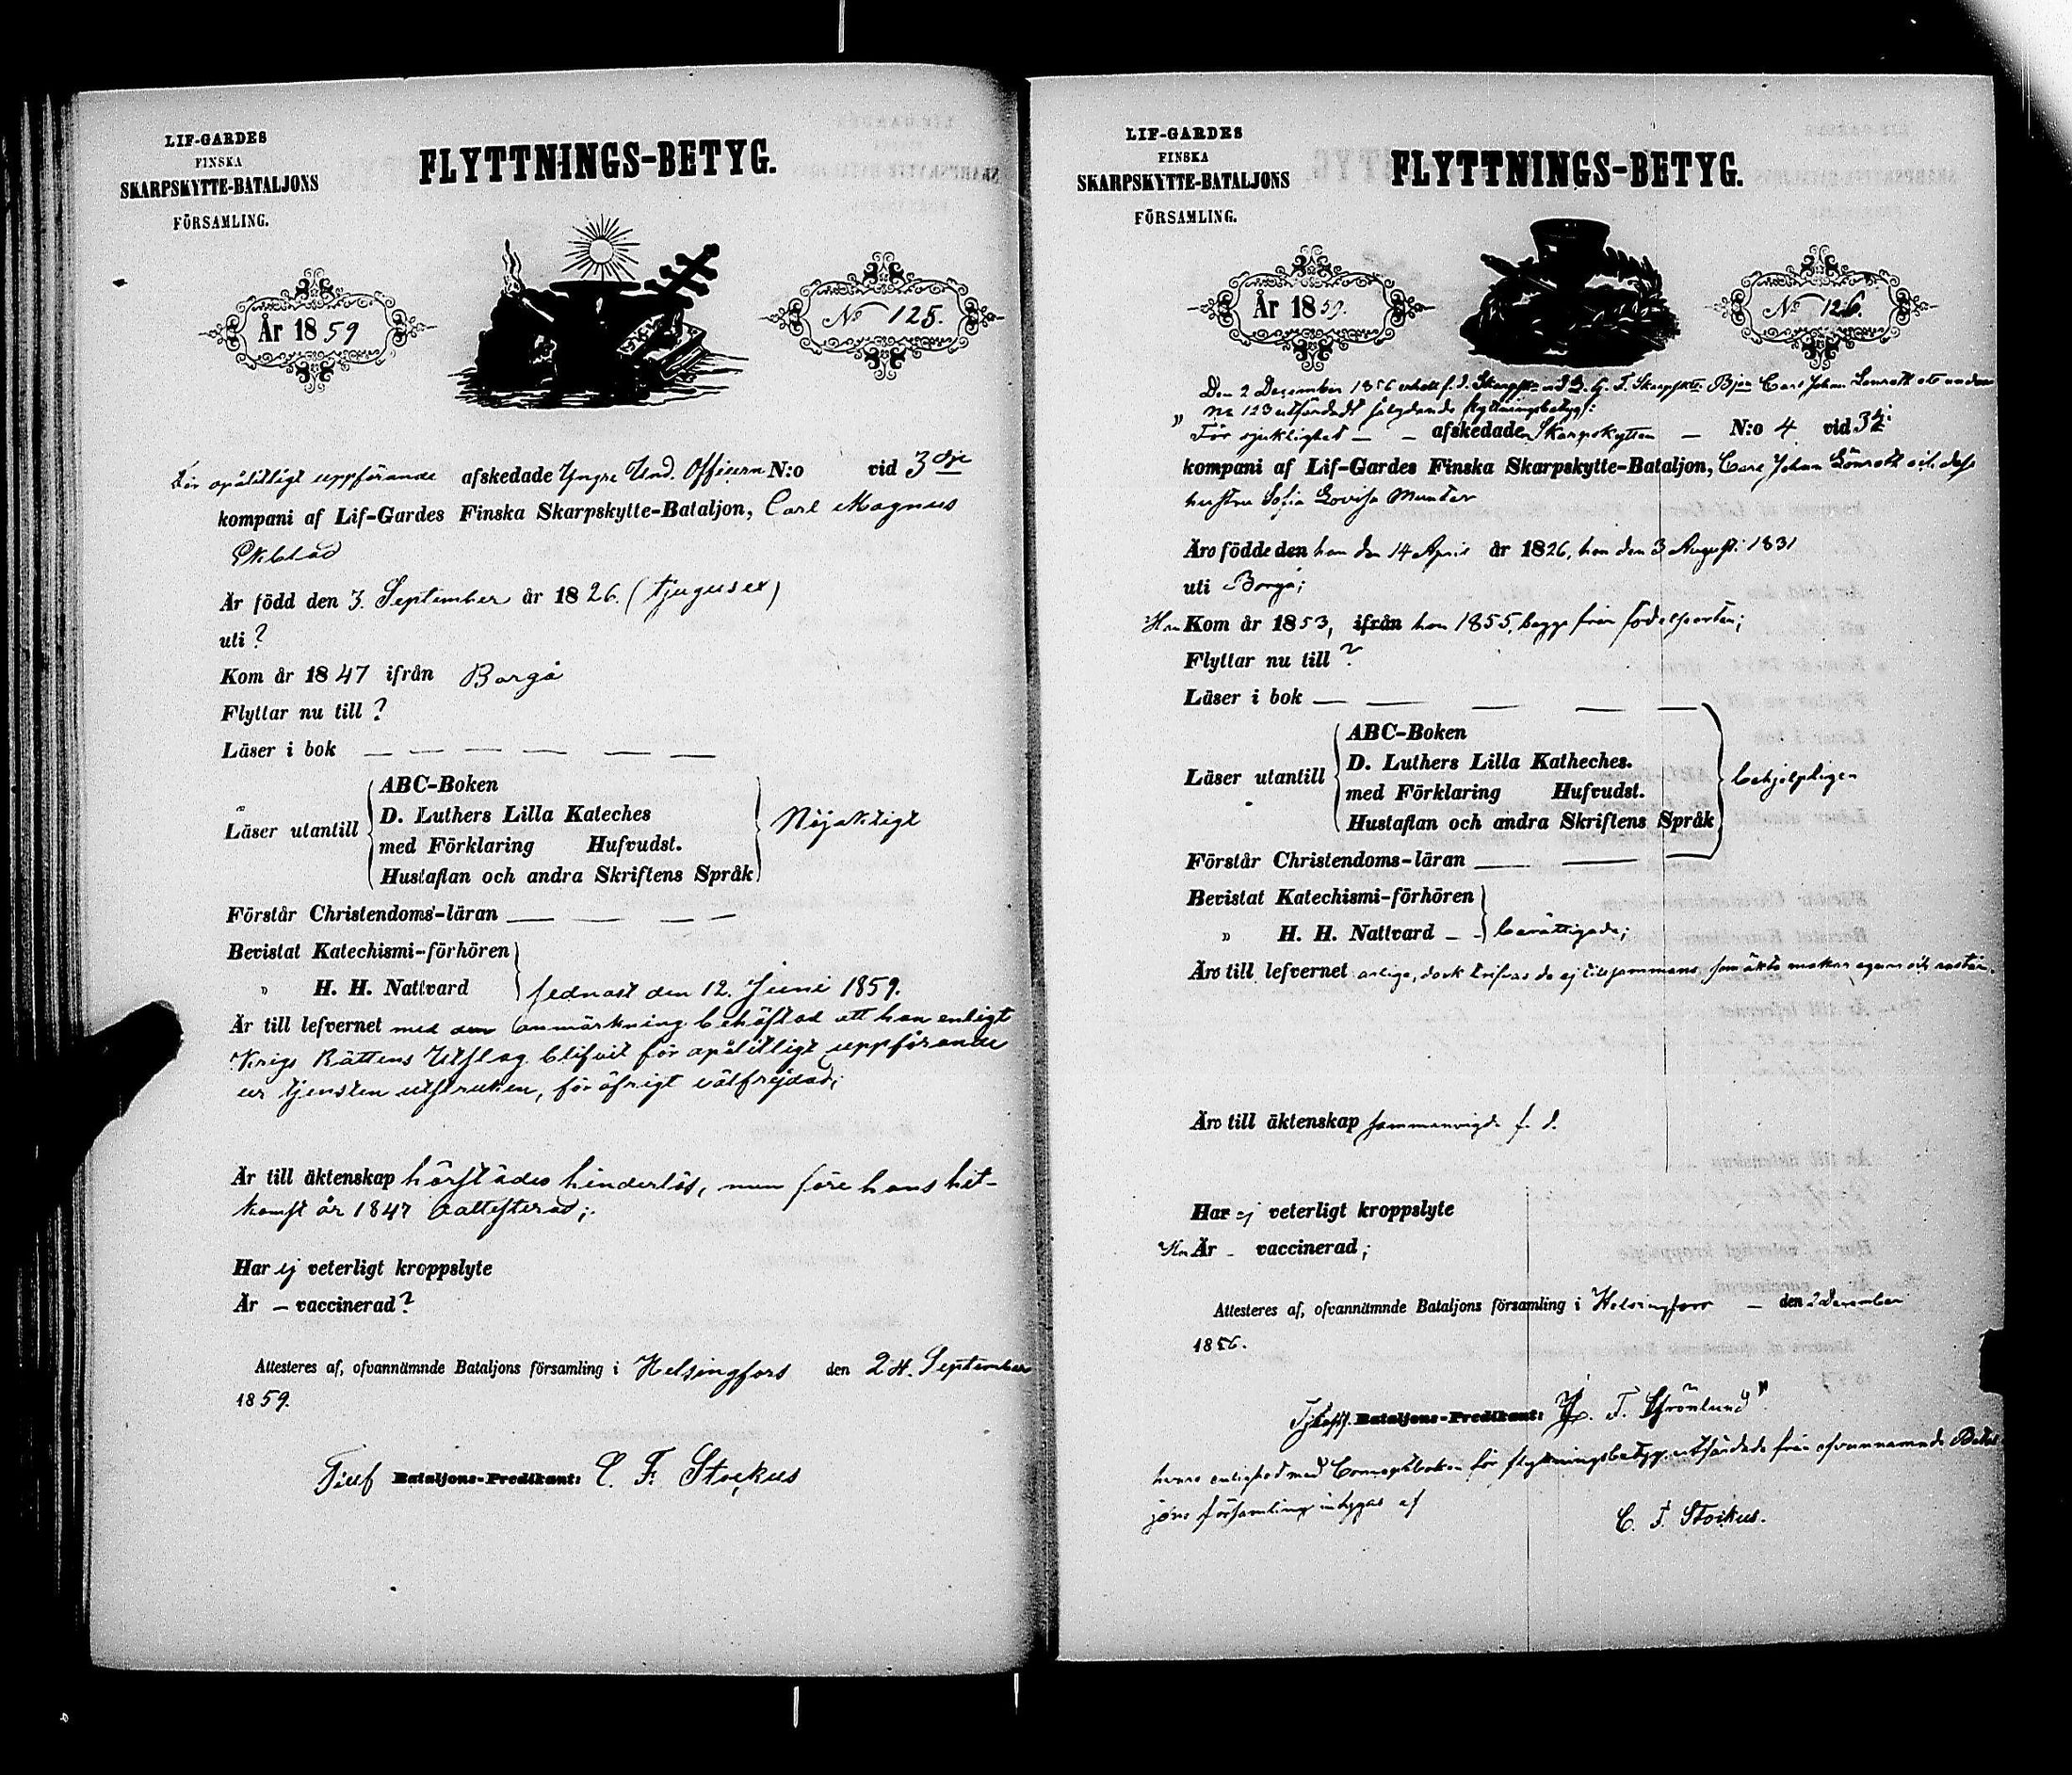 LIF-GARDES
FINSKA
SKARPSKYTTE-BATALJONS
FÖRSAMLING.
FLYTTNINGS-BETYG.
År 1859
No 125.
För opålitligt uppförande afskedade Yngre Und. Officern N:o vid 3dje
kompani af Lif-Gardes Finska Skarpskytte-Bataljon, Carl Magnus
Ekblad
Är född den 3. September år 1826. (tjugusex)
uti ?
Kom år 1847 ifrån Borgå
Flyttar nu till ?
Läser i bok — — — — — —
Läser utantill
ABC-Boken
D. Luthers Lilla Kateches
med Förklaring Hufvudst.
Hustaflan och andra Skriftens Språk
Nöjaktigt
Förstår Christendoms-läran — — — —
Bevistat Katechismi-förhören
" H. H. Nattvard sednast den 12. Juni 1859.
Är till lefvernet med den anmärkning behäftad att han enligt
Krigs Rättens Utslag blifvit för opålitligt uppförande
ur tjensten utstruken, för öfrigt välfrejdad;
Är till äktenskap härstädes hinderlös, men före hans hit-
komst år 1847 oattesterad;
Har ej veterligt kroppslyte
Är — vaccinerad?
Attesteres af, ofvannämnde Bataljons församling i Helsingfors den 24. September
1859.
Bataljons-Predikant: C. F. Stockus
LIF-GARDES
FINSKA
SKARPSKYTTE-BATALJONS
FÖRSAMLING.
FLYTTNINGS-BETYG.
År 1859.
No 126.
Den 2 December 1856 erhöll f. d. Skarpsk. vid L. G. F. Skarpskt. Bjon Carl Johan Lönroth ett under
No 123 utfärdadt följande flyttningsbetyg:
" För sjuklighet — — afskedade Skarpskytten — N:o 4 vid 3dje
kompani af Lif-Gardes Finska Skarpskytte-Bataljon, Carl Johan Lönroth och dess
hustru Sofia Lovisa Munter
Äro födde den han den 14 April år 1826, hon den 3 Augusti 1831
uti Borgå;
Han Kom år 1853, ifrån hon 1855, begge från födelseorten;
Flyttar nu till ?
Läser i bok — — — — —
Läser utantill
ABC-Boken
D. Luthers Lilla Katheches.
med Förklaring Hufvudst.
Hustaflan och andra Skriftens Språk
behjelpligen
Förstår Christendoms-läran — — —
Bevistat Katechismi-förhören
" H. H. Nattvard — — berättigade;
Äro till lefvernet ärlige, dock trifvas de ej tillsammans, som äkta makar egnar och anstår.
Äro till äktenskap sammanvigde f. d.
Har ej veterligt kroppslyte
Han Är — vaccinerad;
Attesteres af, ofvannämnde Bataljons församling i Helsingfors — den 2 December
1856.
Bataljons-Predikant: F. Strönlund"
enlighet med Conceptboken för flyttningsbetyg utfärdade från ofvannämnde Batal-
jons församling intygas af
C. F. Stockus.